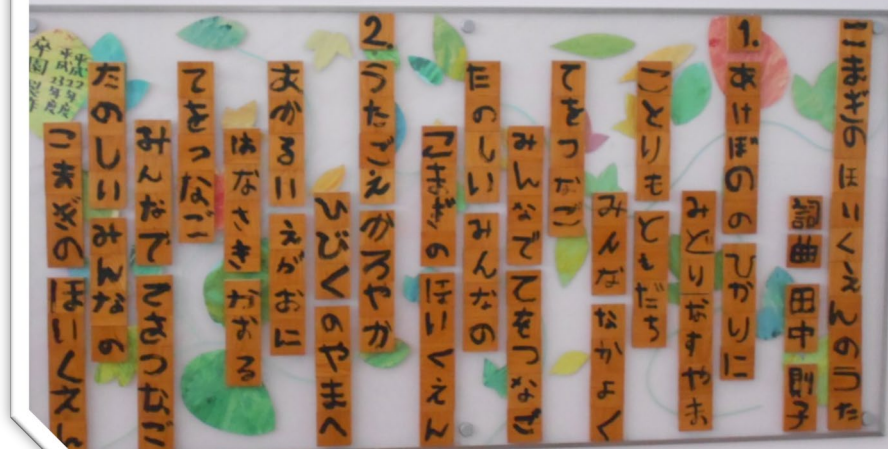 こまぎの ほいくえんのうた
詞曲 田中 則子
1. あけぼのの ひかりに
みどりなすやま
ことりも ともだち
みんな なかよく
てをつなご
みんなで てをつなご
たのしい みんなの
こまぎの ほいくえん
2. うたごえ かろやか
ひびくのやまへ
あかるい えがおに
はなさき かおる
てをつなご
みんなで てをつなご
たのしい みんなの
こまぎの ほいくえん
平成22年度
平成23年度
卒園製作